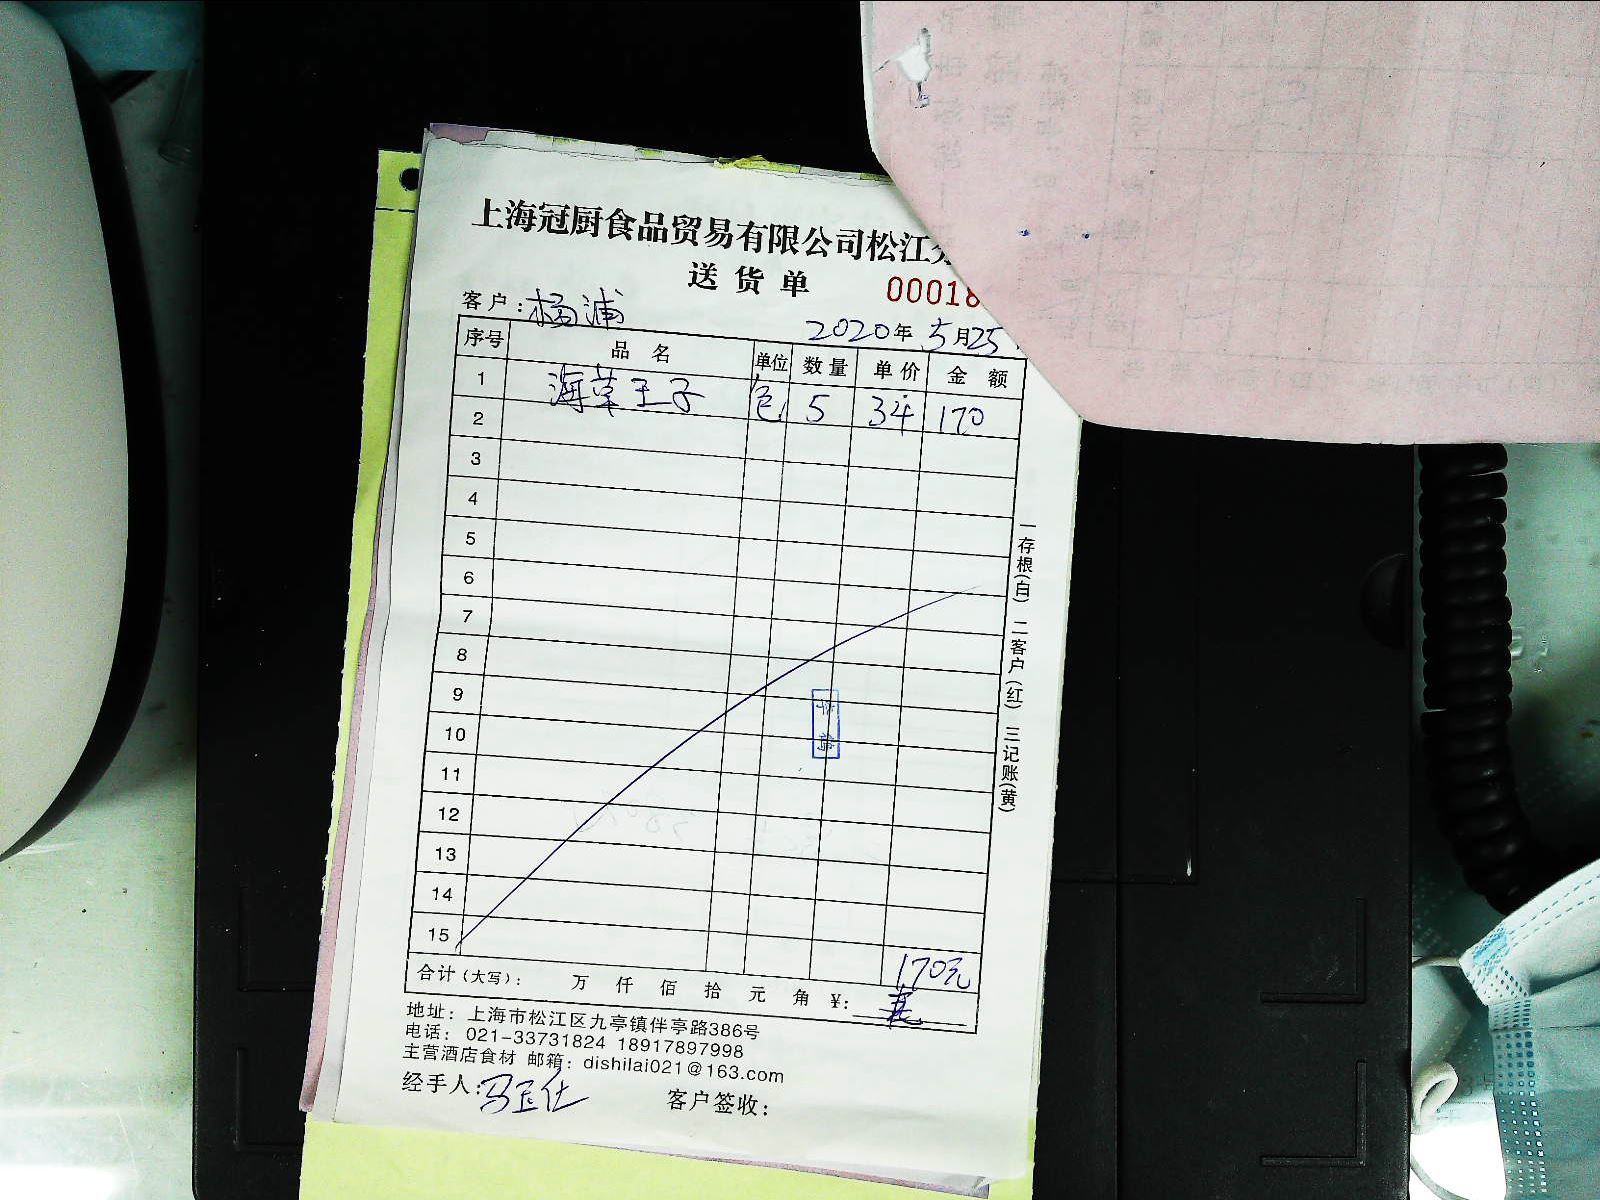 上海冠厨食品贸易有限公司松江
送货单
00018
客户：杨浦
2020年5月25
序号 品名 单位 数量 单价 金额
1 海草王子 包 5 34 170
2
3
4
5
6
7
8
9
10
11
12
13
14
15
170元
合计（大写）： 万 仟 佰 拾 元 角 ¥：
地址：上海市松江区九亭镇伴亭路386号
电话：021-33731824 18917897998
主营酒店食材 邮箱：dishilai021@163.com
经手人： 客户签收：
一存根（白） 二客户（红） 三记账（黄）